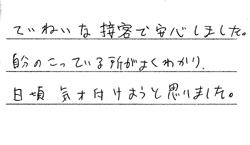 ていねいな接客で安心しました。
自分のこっている所がよくわかり、
日頃気を付けようと思いました。